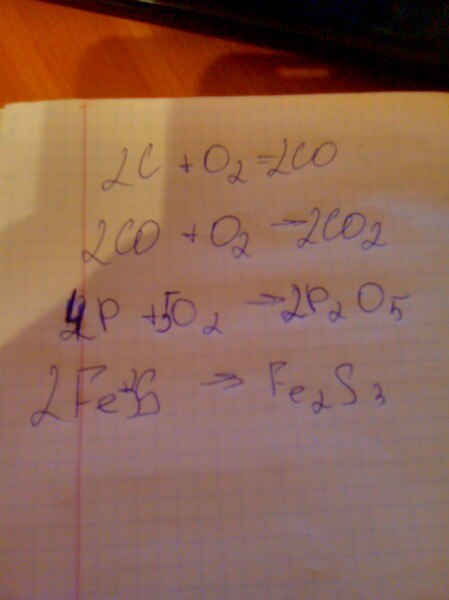 2C + O₂ = 2CO
2CO + O₂ → 2CO₂
4P + 5O₂ → 2P₂O₅
2Fe + 3S → Fe₂S₃